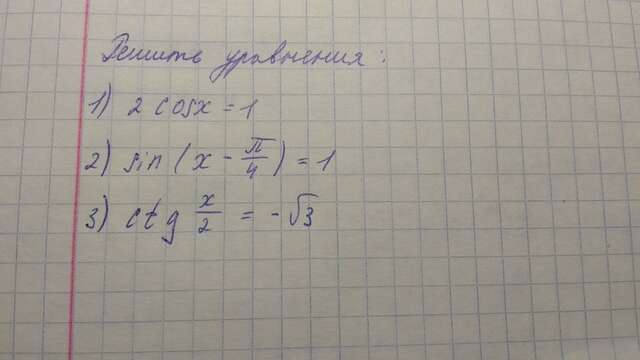 Решить уровнения:
1) 2 cosx = 1
2) sin (x - π/4) = 1
3) ctg x/2 = -√3